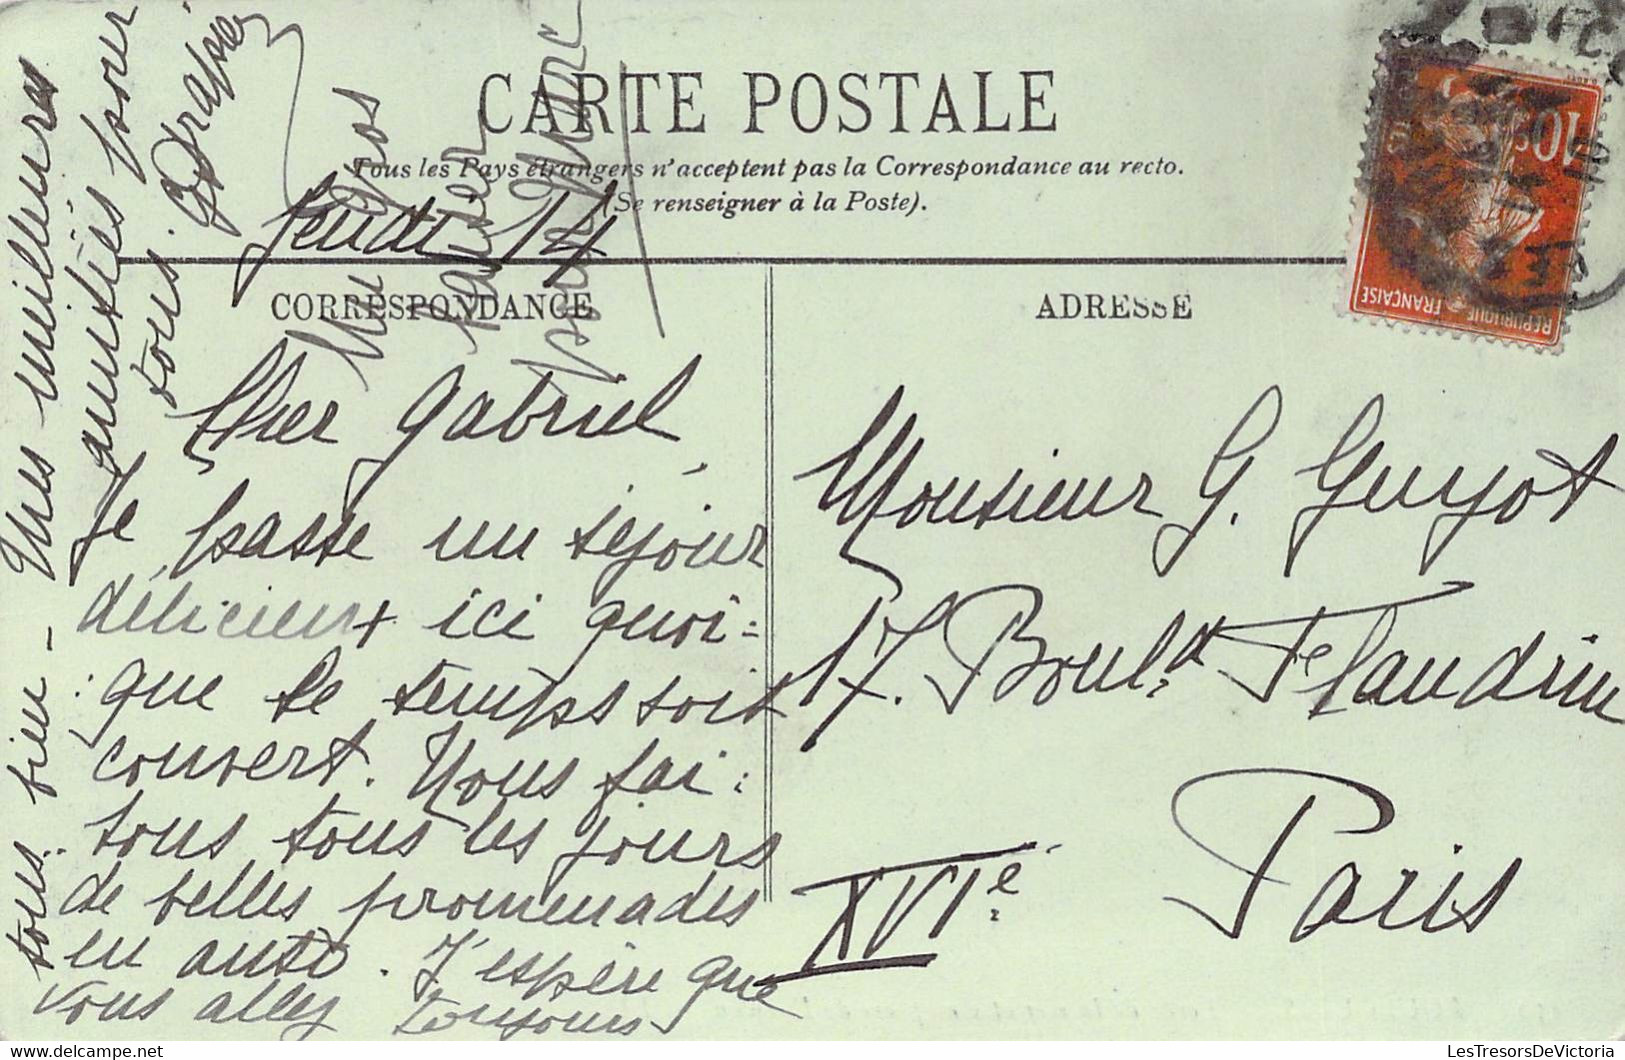 CARTE POSTALE
Tous les Pays étrangers n'acceptent pas la Correspondance au recto.
(Se renseigner à la Poste).
CORRESPONDANCE
ADRESSE
Jeudi 14
Cher Gabriel,
Je passe un séjour
délicieux ici quoi=
que le temps soit
couvert. Nous fai=
sons tous les jours
de belles promenades
en auto. J'espère que
vous allez toujours
tous bien - Mes meilleures
amitiés pour
tous.
Monsieur G. Guyot
17. Boul.d Flandrin
Paris
XVIe
10c
RÉPUBLIQUE FRANÇAISE
LesTresorsDeVictoria
www.delcampe.net